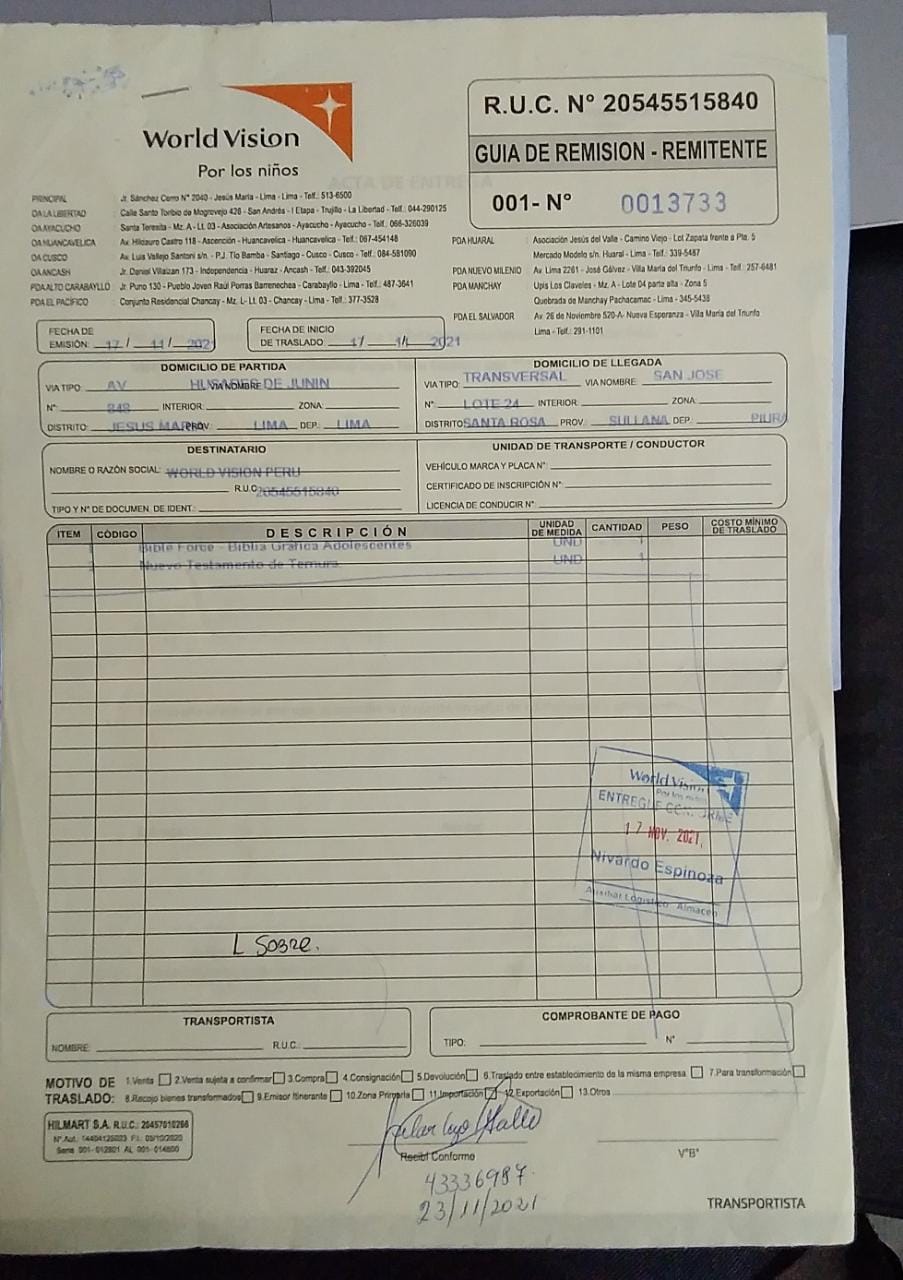 World Vision
Por los niños
R.U.C. N° 20545515840
GUIA DE REMISION - REMITENTE
001- N° 0013733
PRINCIPAL : Jr. Sánchez Cerro N° 2040 - Jesús María - Lima - Lima - Telf.: 513-6500
OA LA LIBERTAD : Calle Santo Toribio de Mogrovejo 428 - San Andrés - I Etapa - Trujillo - La Libertad - Telf.: 044-290125
OA AYACUCHO : Santa Teresita - Mz. A - Lt. 03 - Asociación Artesanos - Ayacucho - Ayacucho - Telf.: 066-326039
OA HUANCAVELICA : Av. Hildauro Castro 118 - Ascención - Huancavelica - Huancavelica - Telf.: 067-454148
OA CUSCO : Av. Luis Vallejo Santoni s/n. - P.J. Tío Bamba - Santiago - Cusco - Cusco - Telf.: 084-581090
OA ANCASH : Jr. Daniel Villaizan 173 - Independencia - Huaraz - Ancash - Telf.: 043-392045
PDA ALTO CARABAYLLO : Jr. Puno 130 - Pueblo Joven Raúl Porras Barrenechea - Carabayllo - Lima - Telf.: 487-3641
PDA EL PACÍFICO : Conjunto Residencial Chancay - Mz. L- Lt. 03 - Chancay - Lima - Telf.: 377-3528
PDA HUARAL : Asociación Jesús del Valle - Camino Viejo - Lot Zapata frente a Pta. 5
Mercado Modelo s/n. Huaral - Lima - Telf.: 339-5487
PDA NUEVO MILENIO : Av. Lima 2261 - José Gálvez - Villa María del Triunfo - Lima - Telf.: 257-6481
PDA MANCHAY : Upis Los Claveles - Mz. A - Lote 04 parte alta - Zona 5
Quebrada de Manchay Pachacamac - Lima - 345-5438
PDA EL SALVADOR : Av. 26 de Noviembre 520-A- Nueva Esperanza - Villa María del Triunfo
Lima - Telf.: 291-1101
FECHA DE
EMISIÓN: 17 / 11 / 2021
FECHA DE INICIO
DE TRASLADO: 2021
DOMICILIO DE PARTIDA
VIA TIPO: AV VIA NOMBRE HUSARES DE JUNIN
N°: 848 INTERIOR: ZONA:
DISTRITO: JESUS MARIA PROV. LIMA DEP.: LIMA
DOMICILIO DE LLEGADA
VIA TIPO: TRANSVERSAL VIA NOMBRE: SAN JOSE
N°: LOTE 24 INTERIOR: ZONA:
DISTRITO SANTA ROSA PROV. SULLANA DEP.: PIURA
DESTINATARIO
NOMBRE O RAZÓN SOCIAL: WORLD VISION PERU
R.U.C. 20545515840
TIPO Y N° DE DOCUMEN. DE IDENT.:
UNIDAD DE TRANSPORTE / CONDUCTOR
VEHÍCULO MARCA Y PLACA N°:
CERTIFICADO DE INSCRIPCIÓN N°:
LICENCIA DE CONDUCIR N°:
ITEM CÓDIGO DESCRIPCIÓN UNIDAD DE MEDIDA CANTIDAD PESO COSTO MÍNIMO DE TRASLADO
1 Bible Force - Biblia Grafica Adolescentes UND 1
2 Nuevo Testamento de Ternura. UND 1
World Vision
Por los niños
ENTREGUE CONFORME
17 NOV. 2021
Nivardo Espinoza
Auxiliar Logístico - Almacen
1 Sobre.
TRANSPORTISTA
NOMBRE: R.U.C.:
COMPROBANTE DE PAGO
TIPO: N°
MOTIVO DE TRASLADO: 1.Venta 2.Venta sujeta a confirmar 3.Compra 4.Consignación 5.Devolución 6.Traslado entre establecimiento de la misma empresa 7.Para transformación
8.Recojo bienes transformados 9.Emisor Itinerante 10.Zona Primaria 11.Importación 12.Exportación 13.Otros
HILMART S.A. R.U.C.: 20457010266
N° Aut.: 14404125023 F.I.: 05/10/2020
Serie 001- 012801 AL 001- 014800
Recibí Conforme
43336987
23/11/2021
V°B°
TRANSPORTISTA